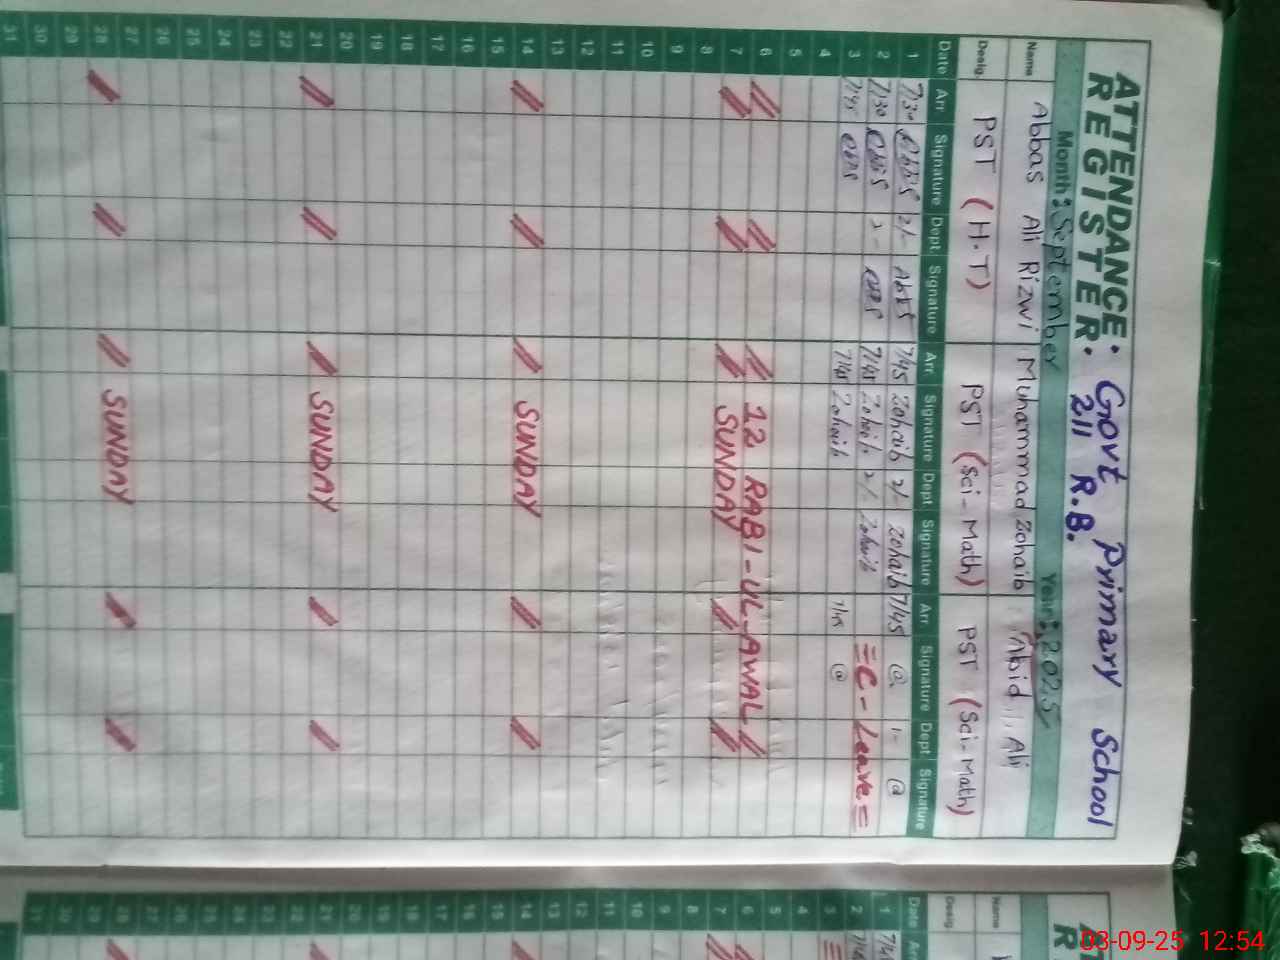 ATTENDANCE: Govt Primary School
REGISTER. 211 R.B.
Month: September Year: 2025
Name Abbas Ali Rizwi Muhammad Zohaib Abid Ali
Desig. PST (H.T) PST (Sci-Math) PST (Sci-Math)
Date Arr Signature Dept Signature Arr Signature Dept Signature Arr Signature Dept Signature
1 7/30 2/- 7/45 Zohaib 2/- Zohaib 7/45 @ 1- @
2 7/30 2- 7/45 Zohaib 2/- Zohaib =C-Leave=
3 7/45 7/45 Zohaib 7/45 @
4
5
6 12 RABI-UL-AWAL
7 SUNDAY
8
9
10
11
12
13
14 SUNDAY
15
16
17
18
19
20
21 SUNDAY
22
23
24
25
26
27
28 SUNDAY
29
30
31
Name
Desig.
Date
1 2 3 4 5 6 7 8 9 10 11 12 13 14 15 16 17 18 19 20 21 22 23 24 25 26 27 28 29 30 31
03-09-25 12:54